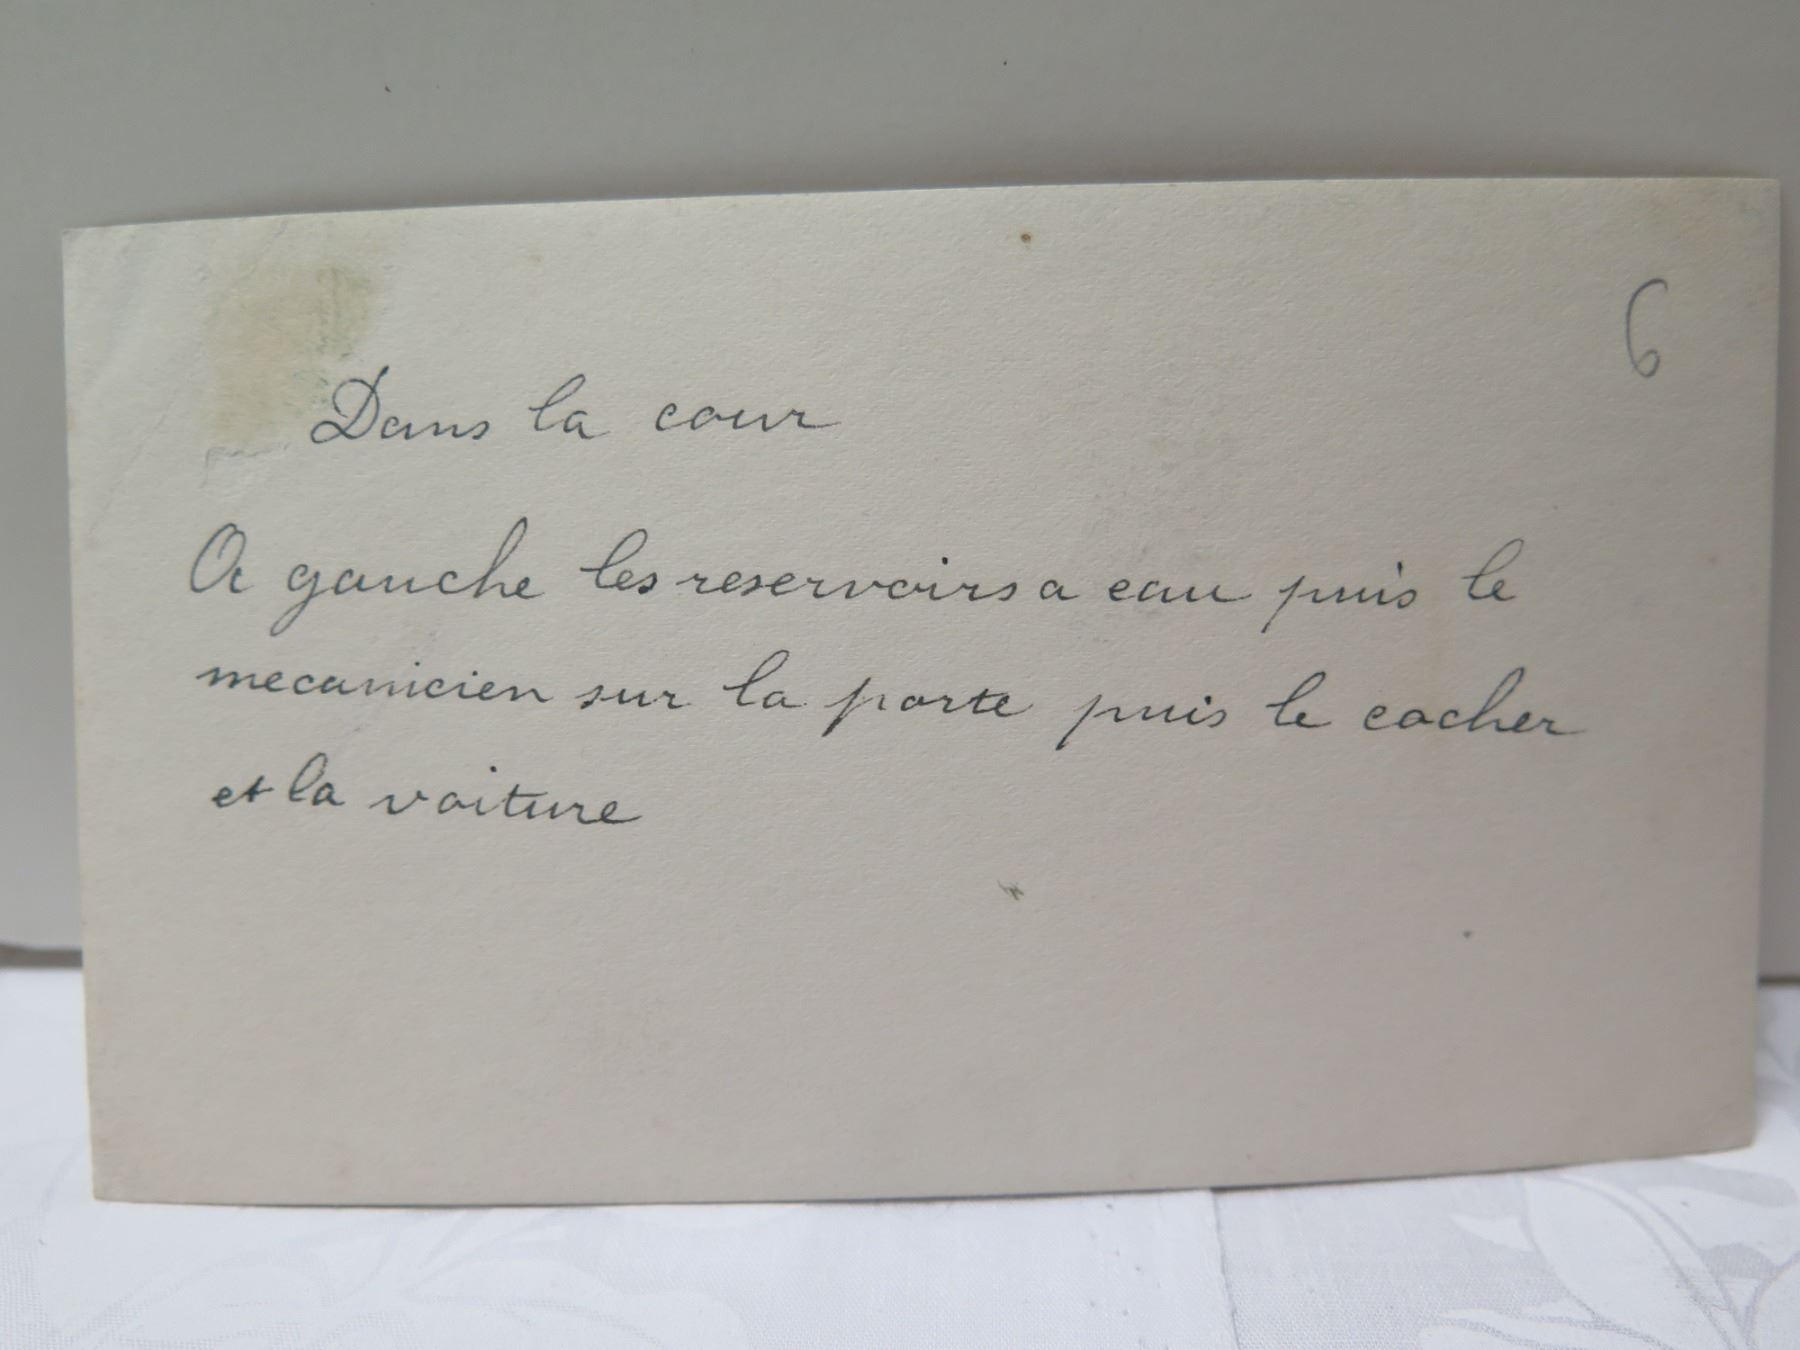 6
Dans la cour
A gauche les reservoirs a eau puis le
mecanicien sur la porte puis le cocher
et la voiture